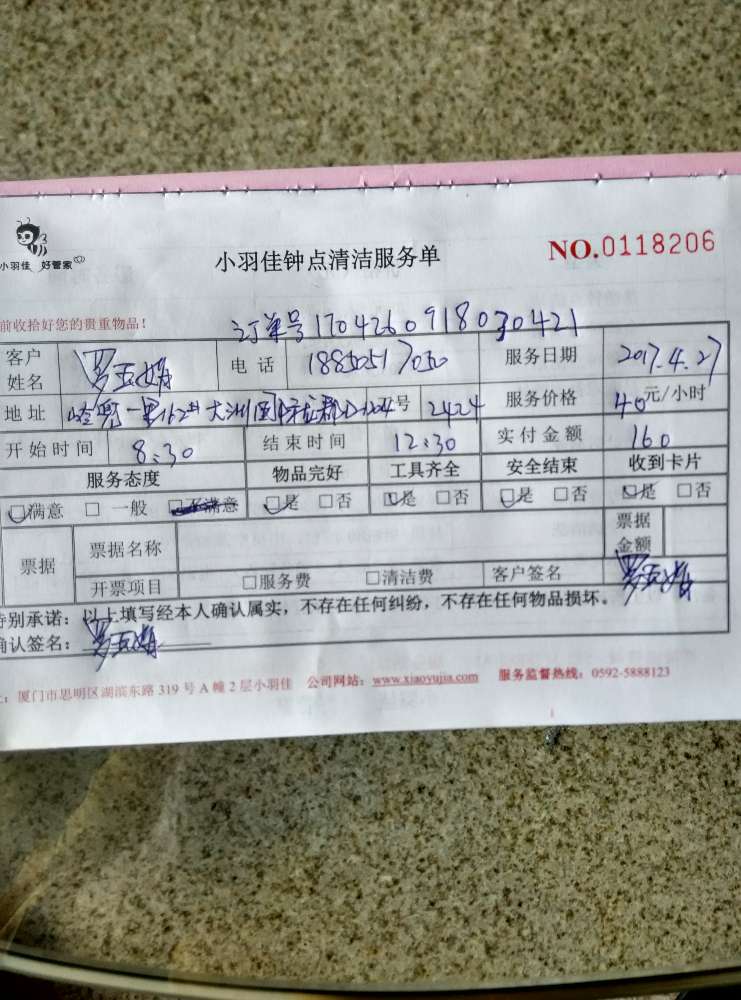 小羽佳 好管家
小羽佳钟点清洁服务单
NO.0118206
前收拾好您的贵重物品!
订单号170426091803042​1
客户姓名 罗玉 电话 服务日期 2017.4.27
地址 一里162# 大洲国 号 2424 服务价格 40元/小时
开始时间 8:30 结束时间 12:30 实付金额 160
服务态度 物品完好 工具齐全 安全结束 收到卡片
□满意 □一般 □不满意 □是 □否 □是 □否 □是 □否 □是 □否
票据 票据名称 票据金额
开票项目 □服务费 □清洁费 客户签名 罗玉
特别承诺:以上填写经本人确认属实,不存在任何纠纷,不存在任何物品损坏。
确认签名:罗玉
:厦门市思明区湖滨东路319号A幢2层小羽佳 公司网站:www.xiaoyujia.com 服务监督热线:0592-5888123